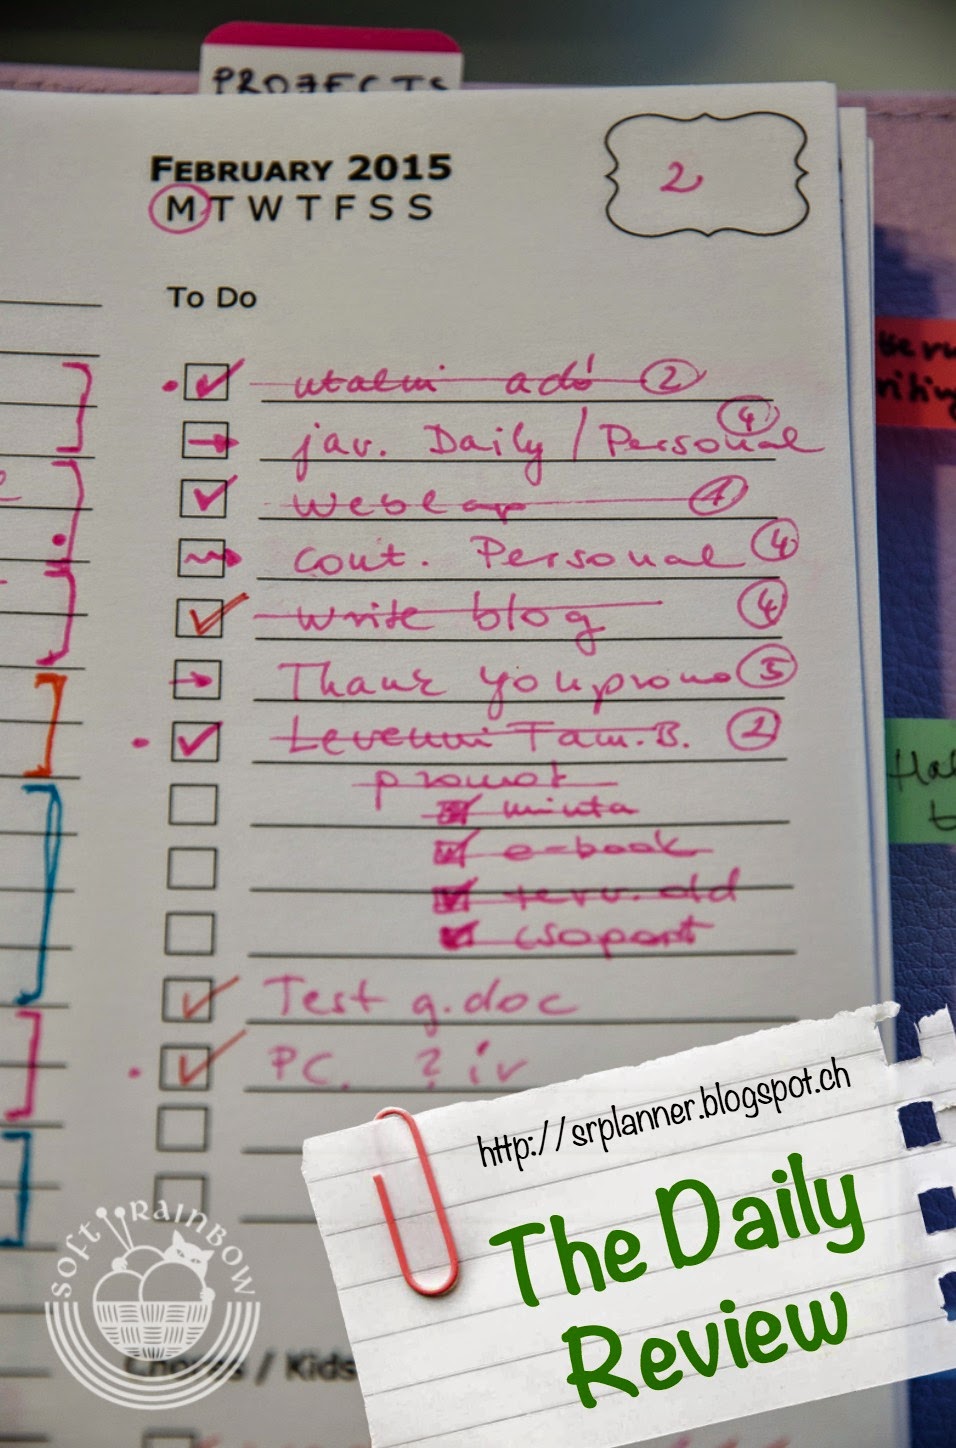 PROJECTS
FEBRUARY 2015
M T W T F S S
2
To Do
utalni adó 2
jav. Daily / Personal 4
weblap 4
cont. Personal 4
write blog 4
Thank you promo 3
Levenni Fam. B. 2
promot
minta
e-book
terv. old
csoport
Test g.doc
PC. ? ív
Chores / Kids
http://srplanner.blogspot.ch
The Daily
Review
SOFT RAINBOW